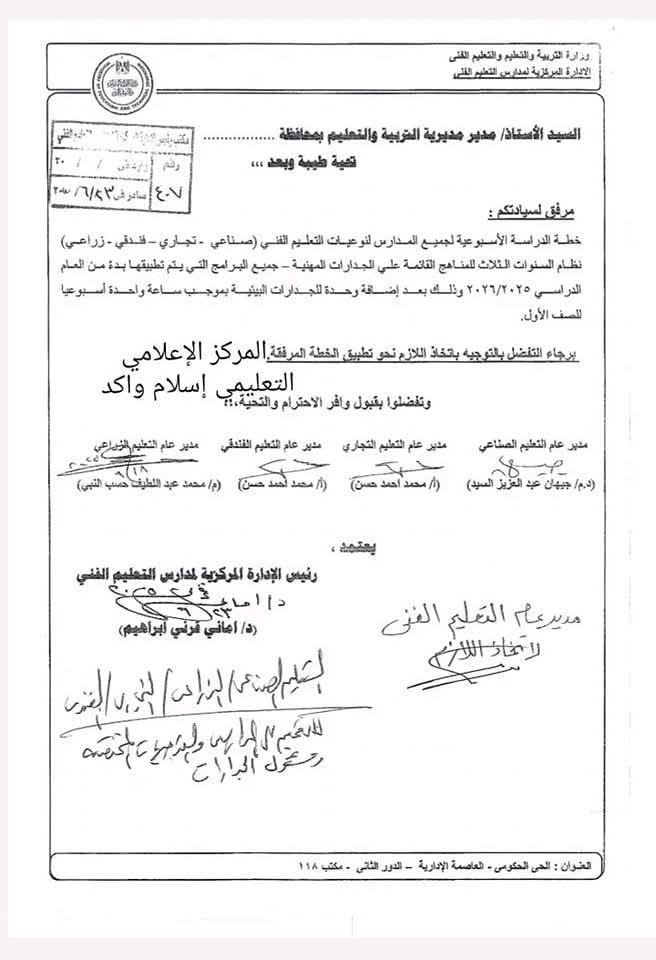 وزارة التربية والتعليم والتعليم الفنى
الادارة المركزية لمدارس التعليم الفنى
السيد الأستاذ/ مدير مديرية التربية والتعليم بمحافظة ................
تحية طيبة وبعد ،،،
رقم
٤٠٧
صادر فى ٦/٢٣/
مرفق لسيادتكم :
خطة الدراسة الأسبوعية لجميع المدارس لنوعيات التعليم الفني (صناعي - تجاري – فندقي - زراعي)
نظام السنوات الثلاث للمناهج القائمة علي الجدارات المهنية – جميع البرامج التي يتم تطبيقها بدة من العام
الدراسي ٢٠٢٦/٢٠٢٥ وذلك بعد إضافة وحدة للجدارات البيئية بموجب ساعة واحدة أسبوعيا
للصف الأول.
برجاء التفضل بالتوجيه باتخاذ اللازم نحو تطبيق الخطة المرفقة.
المركز الإعلامي
التعليمي إسلام واكد
وتفضلوا بقبول وافر الاحترام والتحية،،،
مدير عام التعليم الصناعي
مدير عام التعليم التجاري
مدير عام التعليم الفندقي
مدير عام التعليم الزراعي
(د.م/ جيهان عبد العزيز السيد)
(أ/ محمد احمد حسن)
(أ/ محمد احمد حسن)
(م/ محمد عبد اللطيف حسب النبي)
يعتمد ،
رئيس الإدارة المركزية لمدارس التعليم الفني
(د/ أماني قرني أبراهيم)
مدير عام التعليم الفنى
لاتخاذ اللازم
العنوان : الحى الحكومى - العاصمة الإدارية – الدور الثانى - مكتب ١١٨